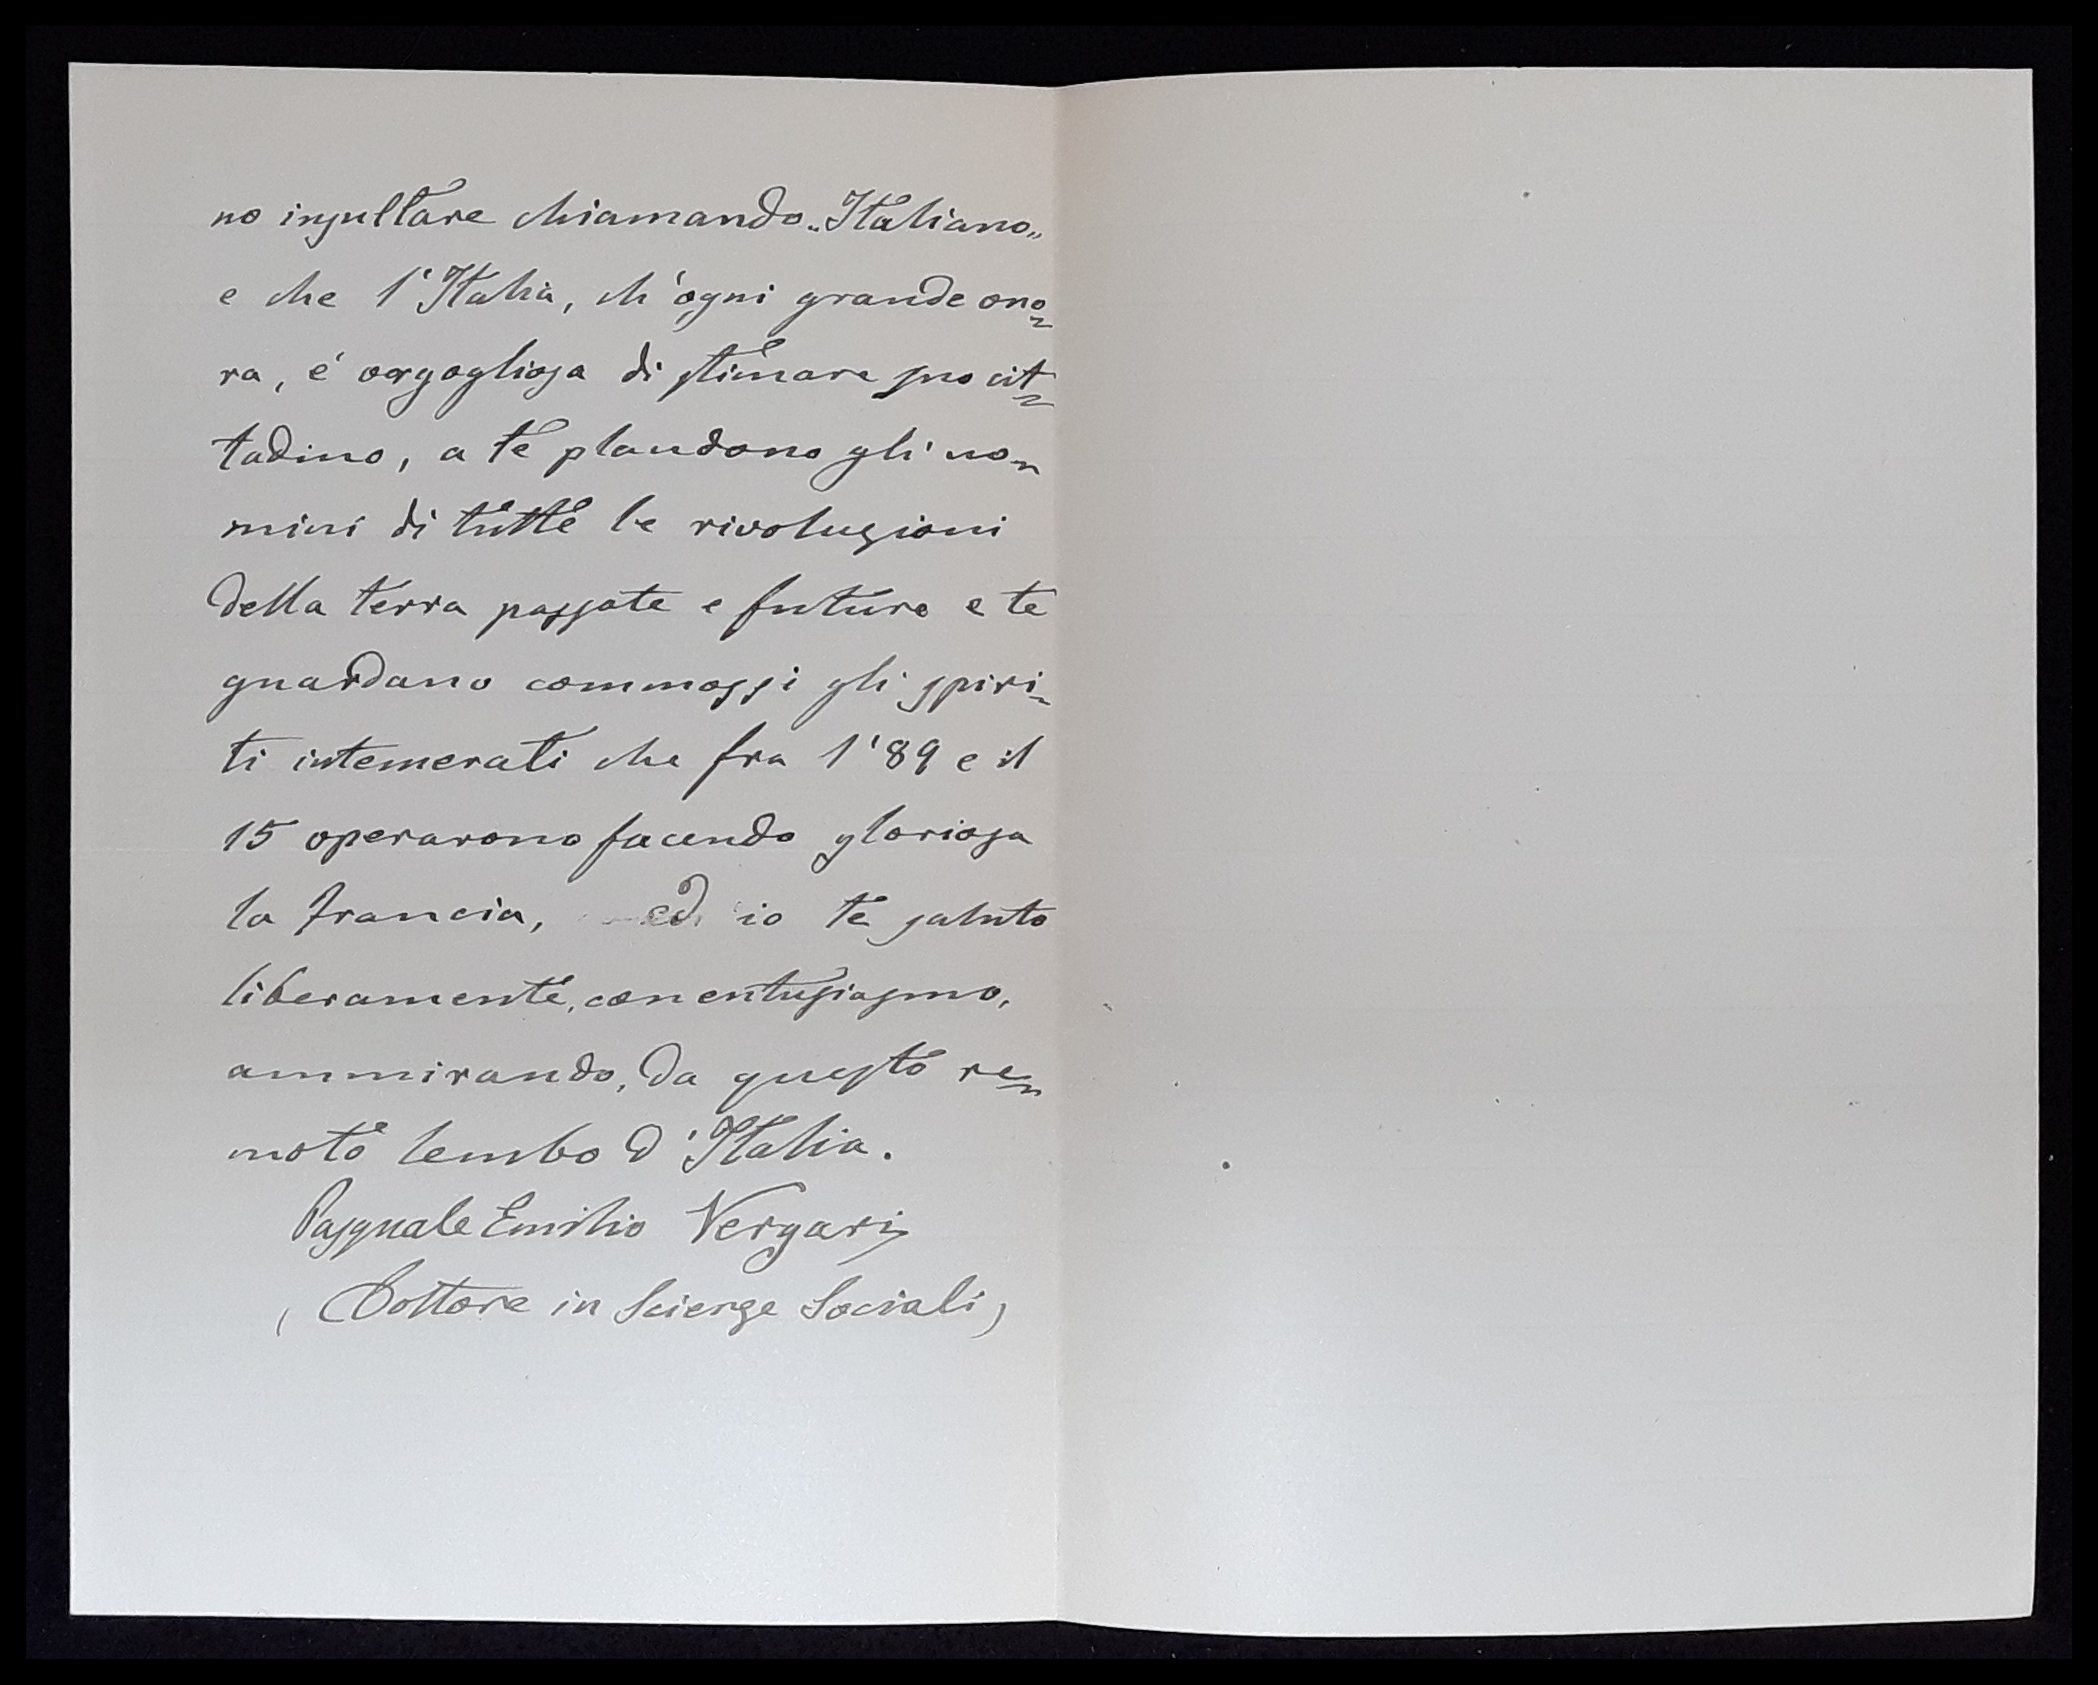 no insultare chiamando „Italiano„
e che l'Italia, ch'ogni grande ono=
ra, é orgogliosa di stimare suo cit=
tadino, a te plaudono gli uo=
mini di tutte le rivoluzioni
della terra passate e future e te
guardano commossi gli spiri=
ti intemerati che fra l'89 e il
15 operarono facendo gloriosa
la Francia, ed io te saluto
liberamente, con entusiasmo,
ammirando, da questo re=
moto lembo d'Italia.
Pasquale Emilio Vergari
(Dottore in Scienze Sociali)